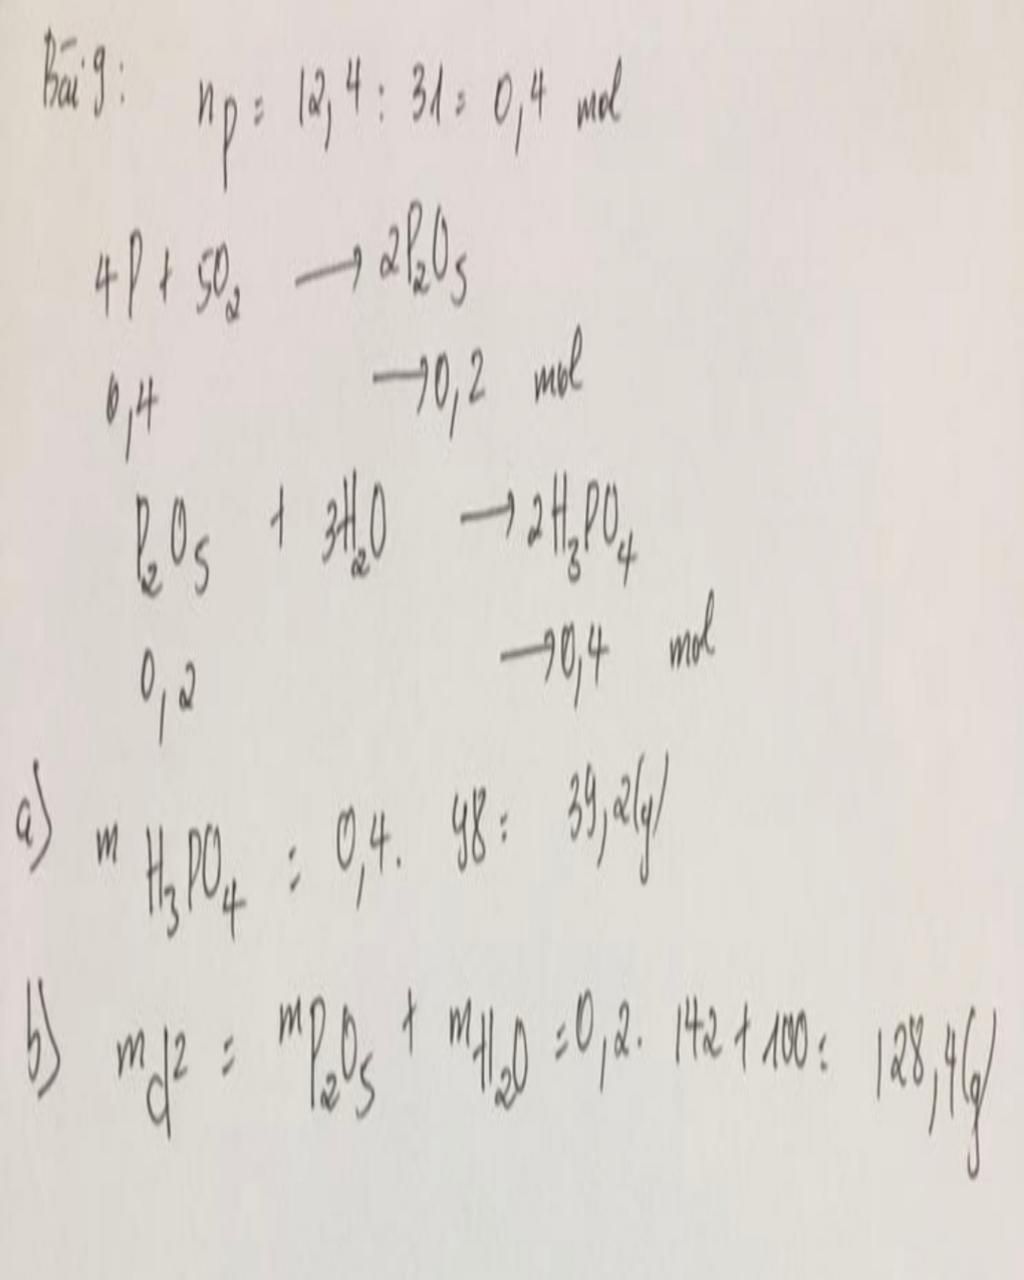 Bài 9: nP = 12,4 : 31 = 0,4 mol
4P + 5O2 → 2P2O5
0,4 → 0,2 mol
P2O5 + 3H2O → 2H3PO4
0,2 → 0,4 mol
a) mH3PO4 = 0,4. 98 = 39,2(g)
b) md2 = mP2O5 + mH2O = 0,2. 142 + 100 = 128,4(g)